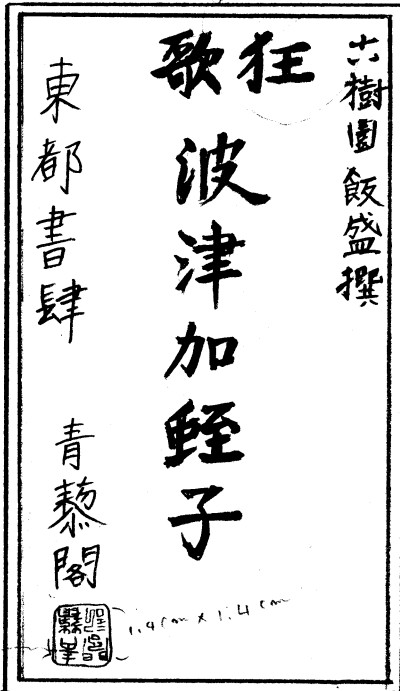 六樹園 飯盛撰
狂歌
波津加蛭子
東都書肆 青藜閣
1.4cm×1.4cm